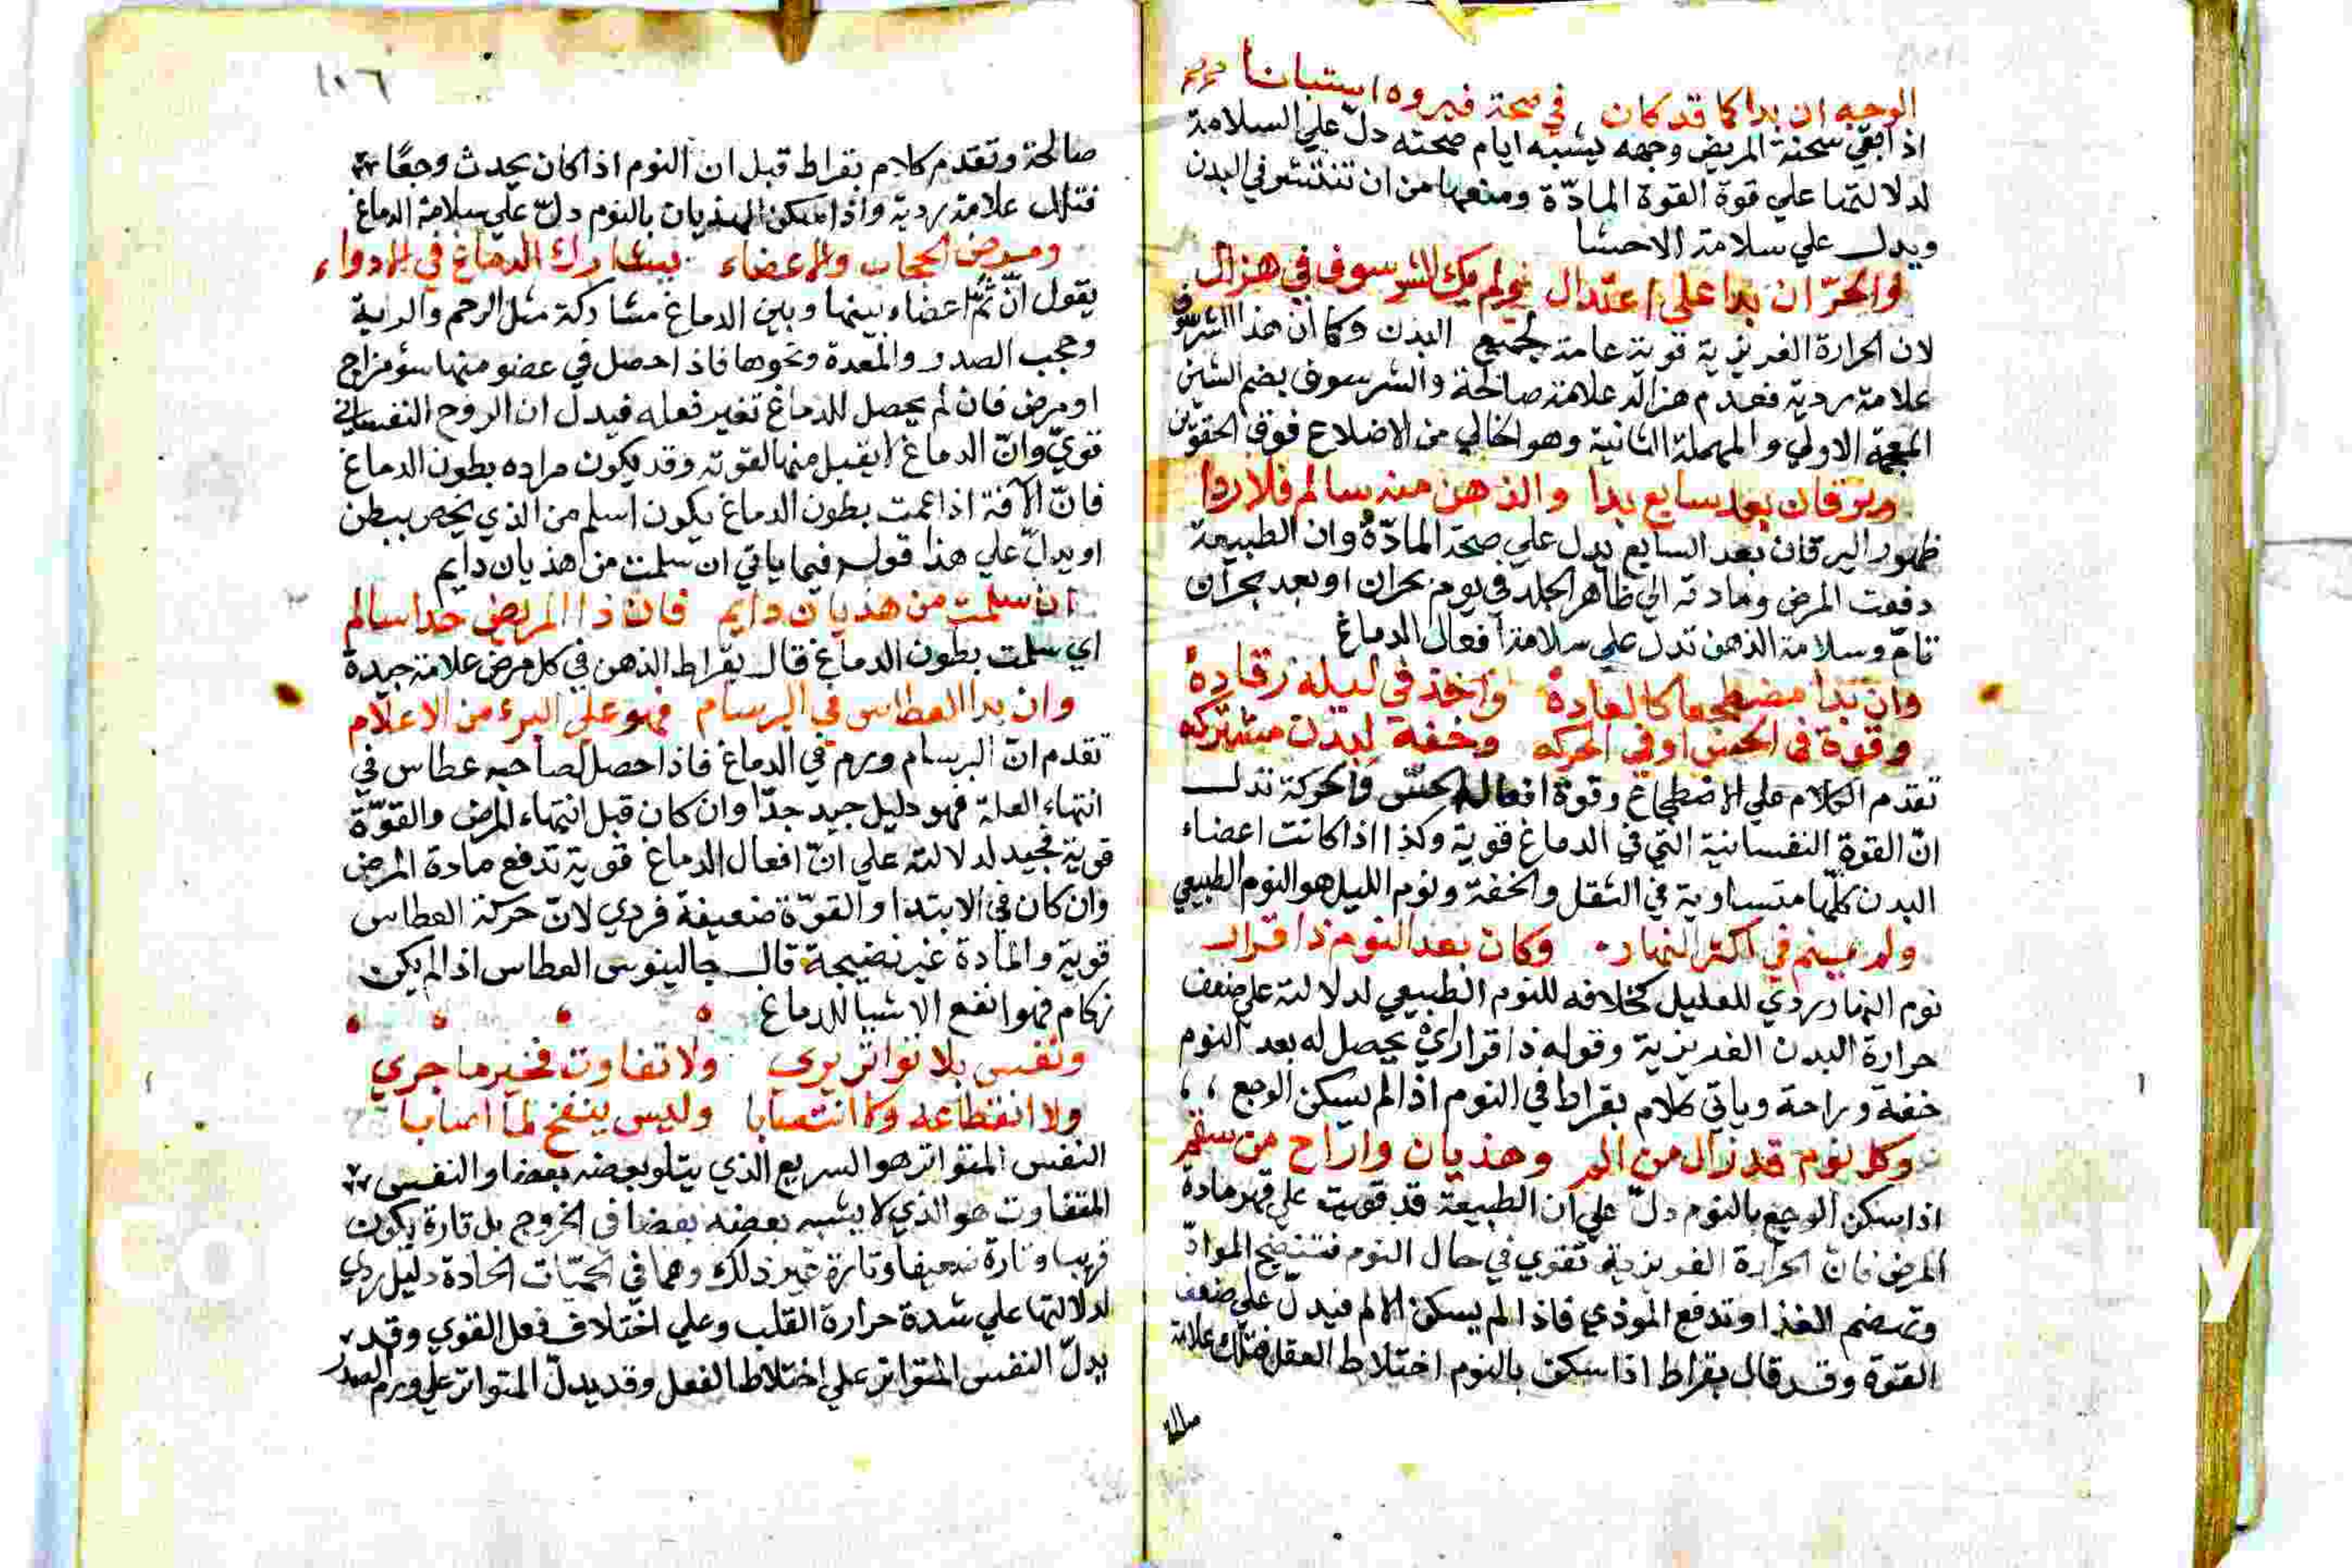 الوجه ان بدا كما قد كان في صحة فبروه استبانا
اذا بقي سحنة المريض وجهه يشبه ايام صحته دل علي السلامة
لدلالتها علي قوة القوة المادّة ومنعها من ان تنتشر في البدن
ويدل علي سلامة الاحشا
والحرّ ان بدا علي اعتدال ولم يك الشرسوف في هزال
لان الحرارة الغريزية قوية عامة لجميع البدن وكما ان هذا الشرسوف
علامة ردية فعدم هزاله علامة صالحة والشرسوف بضم الشين
المعجمة الاولي والمهملة الثانية وهو الخالي من الاضلاع فوق الحقوين
ويرقان بعد سابع بدا والذهن منه سالم فلا ردا
ظهور اليرقان بعد السابع يدل علي صحة المادّة وان الطبيعة
دفعت المرض ومادته الي ظاهر الجلد في يوم بحران او بعد بحران
تامّ وسلامة الذهن تدل علي سلامة افعال الدماغ
وان بدا مضطجعا كالعادة واخذ في ليله رقاده
وقوة في الحس او في الحركه وخفة لبدن مشتركه
تقدم الكلام علي الاضطجاع وقوة افعال الحسّ والحركة تدل
انّ القوة النفسانية التي في الدماغ قوية وكذا اذا كانت اعضاء
البدن كلّها متساوية في الثقل والخفة ونوم الليل هو النوم الطبيعي
ولم ينم في اكثر النهار وكان بعد النوم ذا قرار
نوم النهار ردي للعليل لخلافه للنوم الطبيعي لدلالته علي ضعف
حرارة البدن الغريزية وقوله ذا قرار اي يحصل له بعد النوم
خفة وراحة وياتي كلام بقراط في النوم اذا لم يسكن الوجع
وكل نوم قد زال من الم وهذيان واراح من سقم
اذا سكن الوجع بالنوم دلّ علي ان الطبيعة قد قويت علي قهر مادة
المرض فانّ الحرارة الغريزية تقوي في حال النوم فتنضج الموادّ
وتهضم الغذا وتدفع الموذي فاذا لم يسكن الالم فيدل علي ضعف
القوّة وقد قال بقراط اذا سكن بالنوم اختلاط العقل فتلك علامة
صالحة
١٠٦
صالحة وتقدم كلام بقراط قبل ان النوم اذا كان يحدث وجعًا
فتلك علامة ردية واذا سكن الهذيان بالنوم دلّ علي سلامة الدماغ
ومرض الحجاب والاعضاء يشارك الدماغ في الادواء
يقول انّ ثمّ اعضاء بينها وبين الدماغ مشاركة مثل الرحم والرية
وحجب الصدر والمعدة ونحوها فاذا حصل في عضو منها سؤ مزاج
او مرض فان لم يحصل للدماغ تغير فعله فيدل ان الروح النفساني
قويّ وانّ الدماغ لا يقبل منها لقوته وقد يكون مراده بطون الدماغ
فانّ الآفة اذا عمت بطون الدماغ يكون اسلم من الذي يخص ببطن
او يدلّ علي هذا قوله فيما ياتي ان سلمت من هذيان دايم
ان سلمت من هذيان دايم فان ذا المريض جدا سالم
اي سلمت بطون الدماغ قال بقراط الذهن في كل مرض علامة جيدة
وان بدا العطاس في البرسام فهو علي البرء من الاعلام
تقدم انّ البرسام ورم في الدماغ فاذا حصل لصاحبه عطاس في
انتهاء العلة فهو دليل جيد جدّا وان كان قبل انتهاء المرض والقوّة
قوية فجيد لدلالته علي انّ افعال الدماغ قوية تدفع مادة المرض
وان كان في الابتدا والقوّة ضعيفة فردي لانّ حركة العطاس
قوية والمادة غير نضيجة قال جالينوس العطاس اذا لم يكن
زكام فهو انفع الاشيا للدماغ
ونفس بلا تواتر يري ولا تفاوت فخير ما جري
ولا انقطاعه ولا انتصابا وليس ينفخ لما اصابا
النفس المتواتر هو السريع الذي يتلو بعضه بعضا والنفس
المتفاوت هو الذي لا يشبه بعضه بعضا في الخروج بل تارة يكون
قريبا وتارة ضعيفا وتارة غير ذلك وهما في الحمّيات الحادة دليل ردي
لدلالتها علي شدة حرارة القلب وعلي اختلاف فعل القوي وقد
يدلّ النفس المتواتر علي اختلاط الفعل وقد يدلّ المتواتر علي ورم الصدر